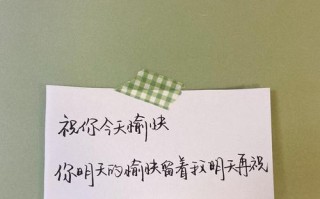 祝你今天愉快
你明天的愉快留着我明天再祝